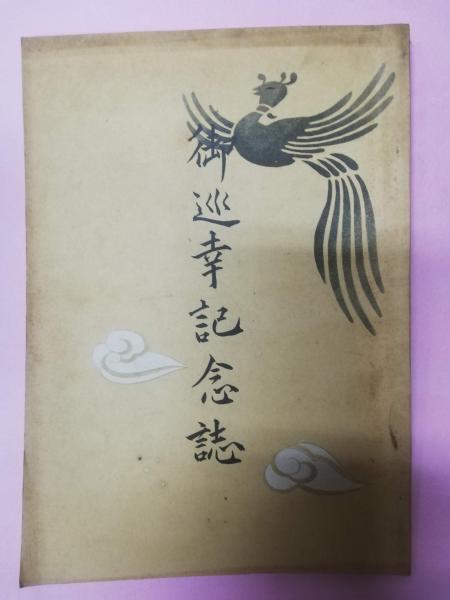 御巡幸記念誌